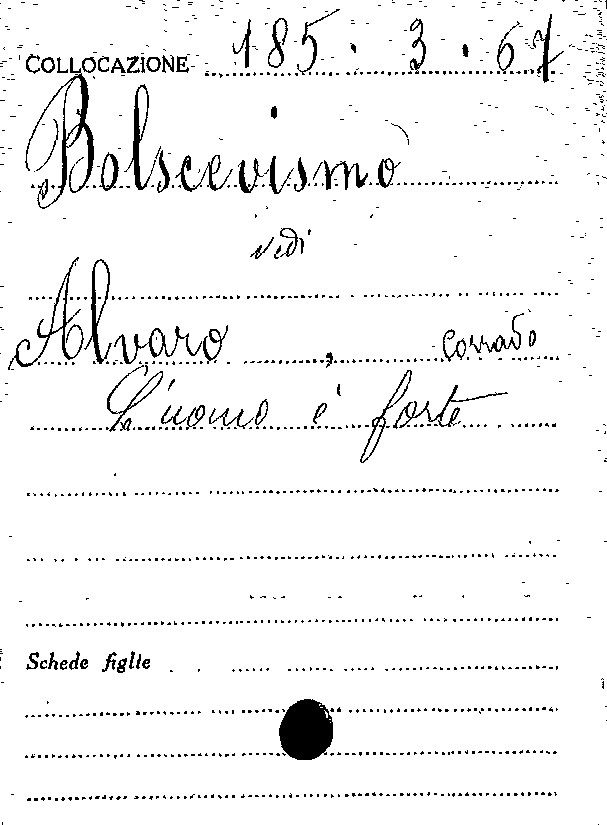 COLLOCAZIONE 185 . 3 . 67
Bolscevismo
vedi
Alvaro , Corrado
L'uomo è forte
Schede figlie